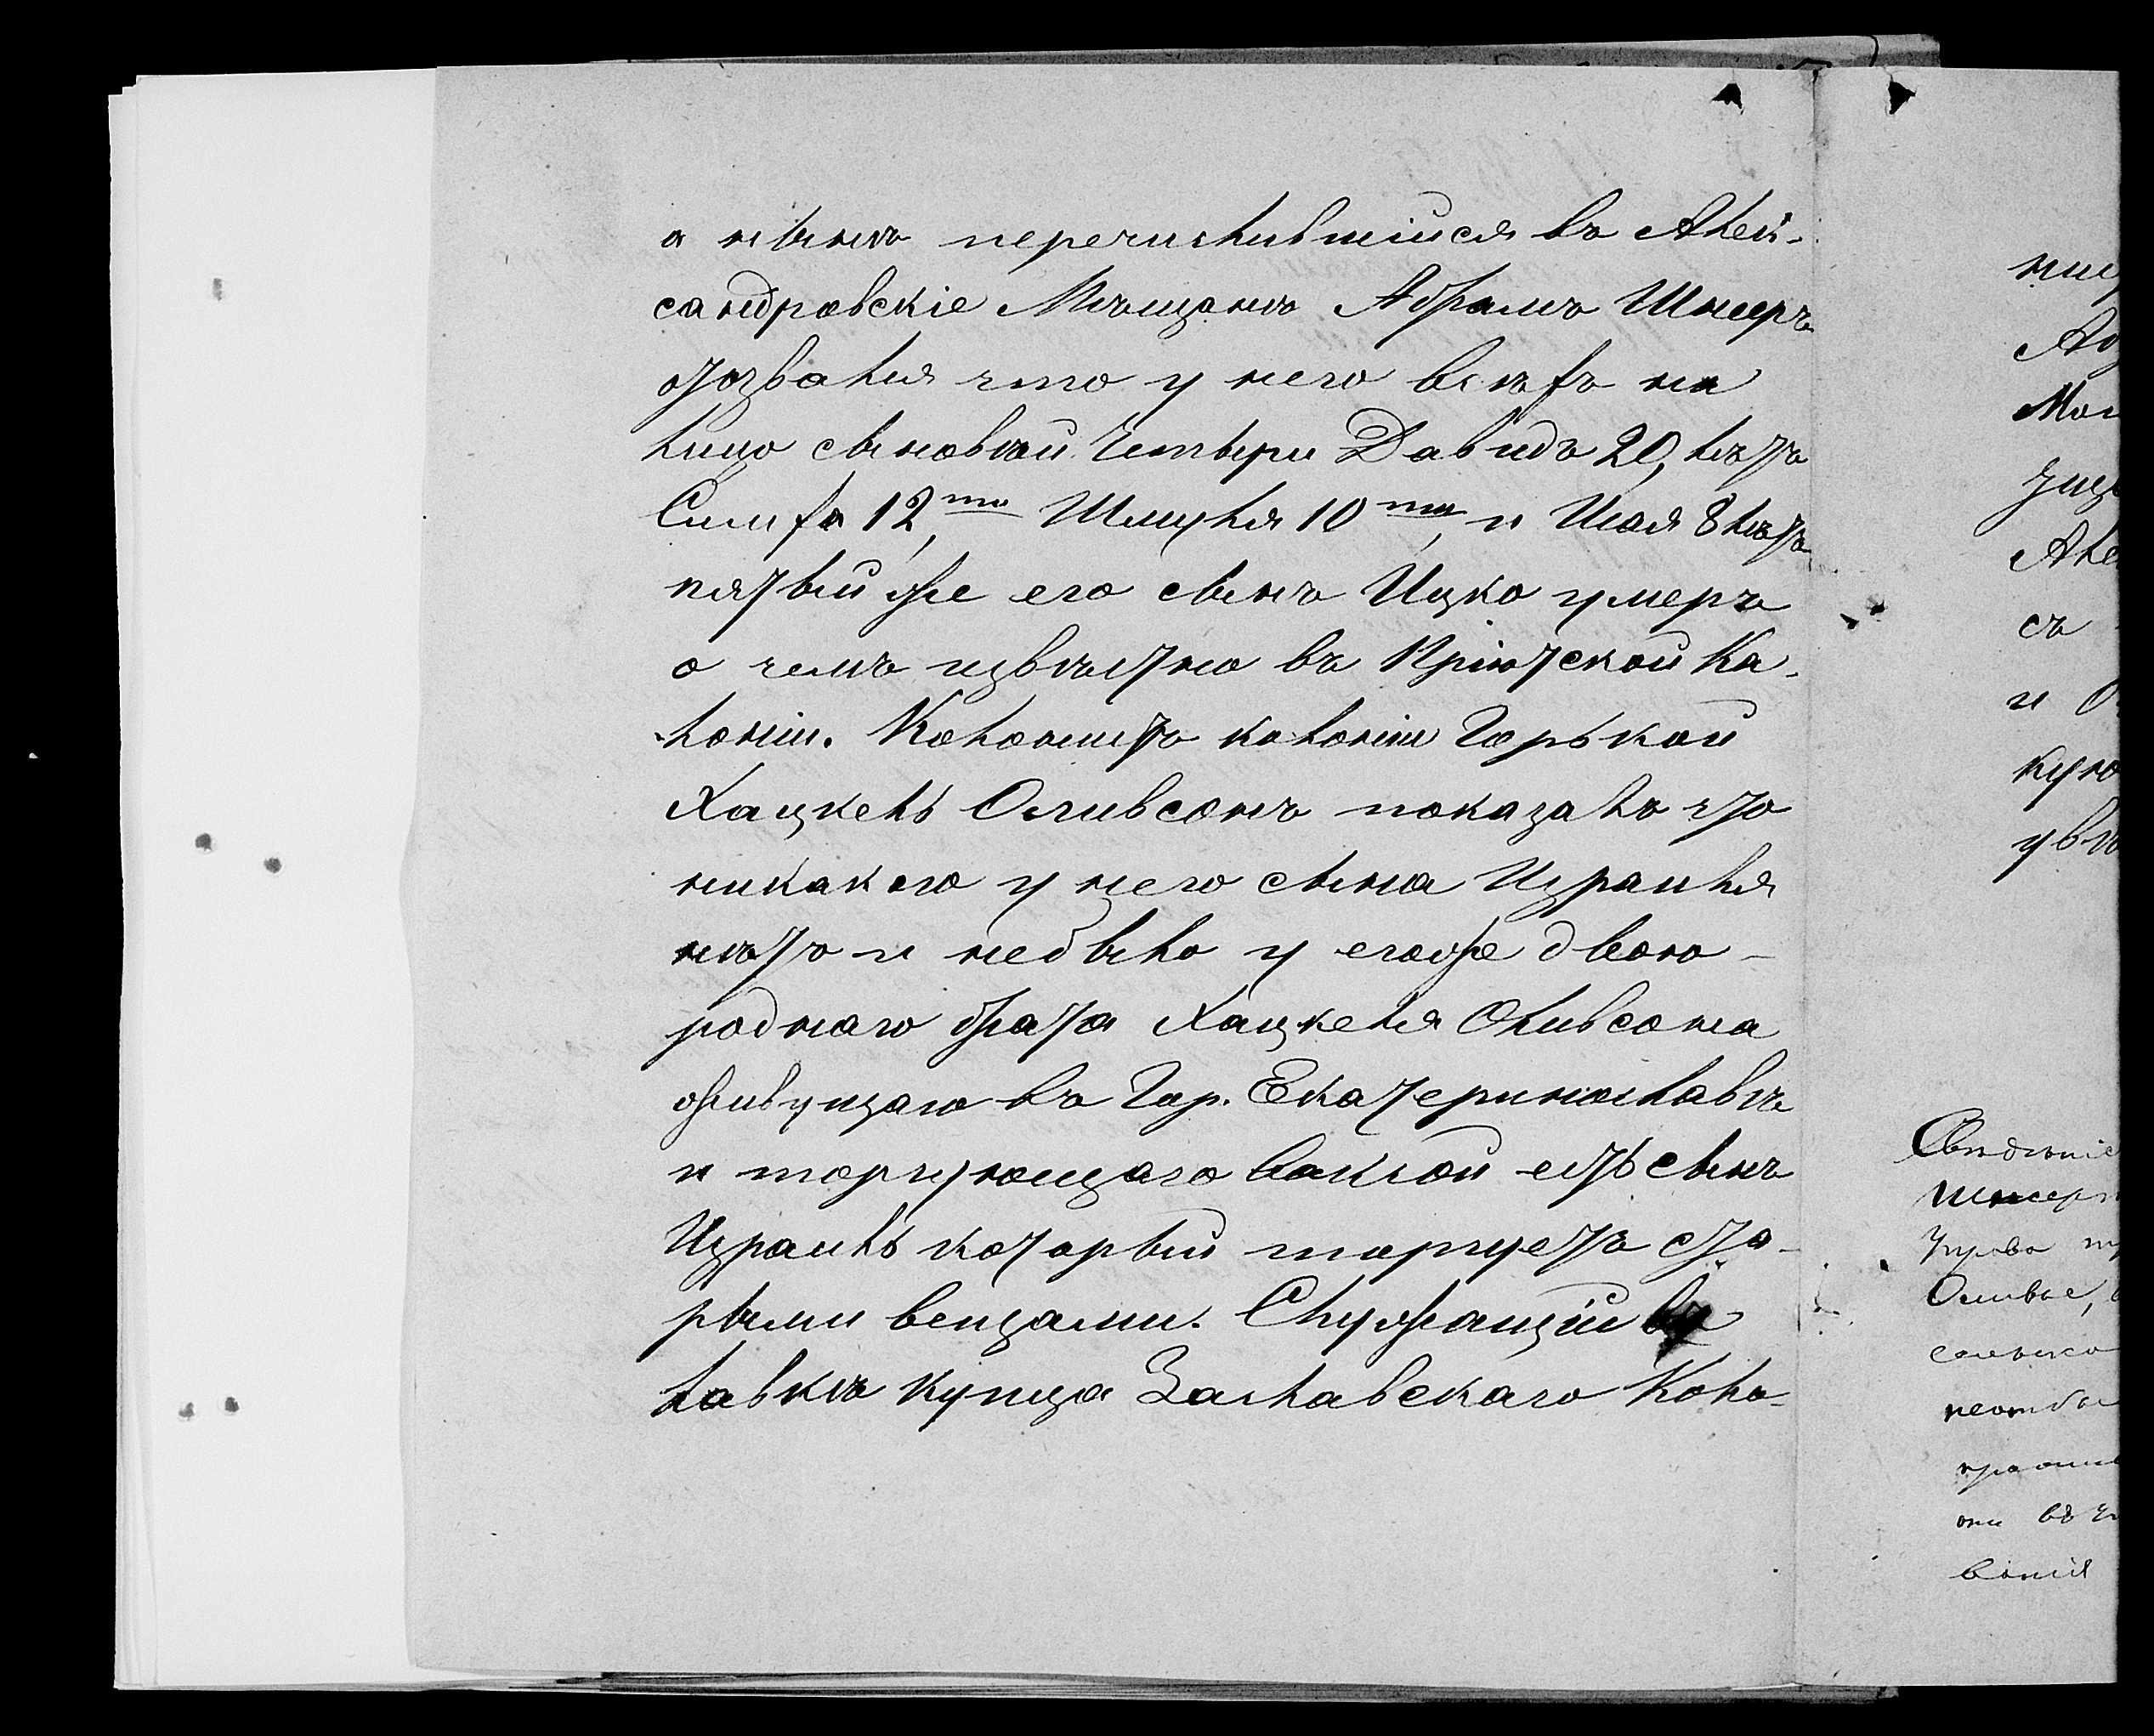 а нынѣ перечислившійся въ Алек-
сандровскіе Мѣщанъ Абрамъ Шнееръ
отозвался что у него всѣхъ на
лицо сыновъай Четыри Давидъ 20, лѣтъ
Симха 12,ти Шмуйля 10ти, и Исая 8 лѣтъ
пятый же его сынъ Ицко умеръ
о чемъ извѣстно въ Пріютской Ка-
лоніи. Колонистъ колоніи Горькой
Хацкель Оливсонъ показалъ что
никакого у него сына Израиля
нѣтъ и небыло у егоже двою-
роднаго брата Хацкеля Оливсона
живущаго въ Гор. Екатеринославѣ
и торгующаго ваксой есть сынъ
Израиль который торгуетъ ста-
рыми вещами. Служащій въ
лавкѣ купца Заславскаго Коло-
Мои
Але
съ
и
Свидѣніе
Шнеер
Оливсе,